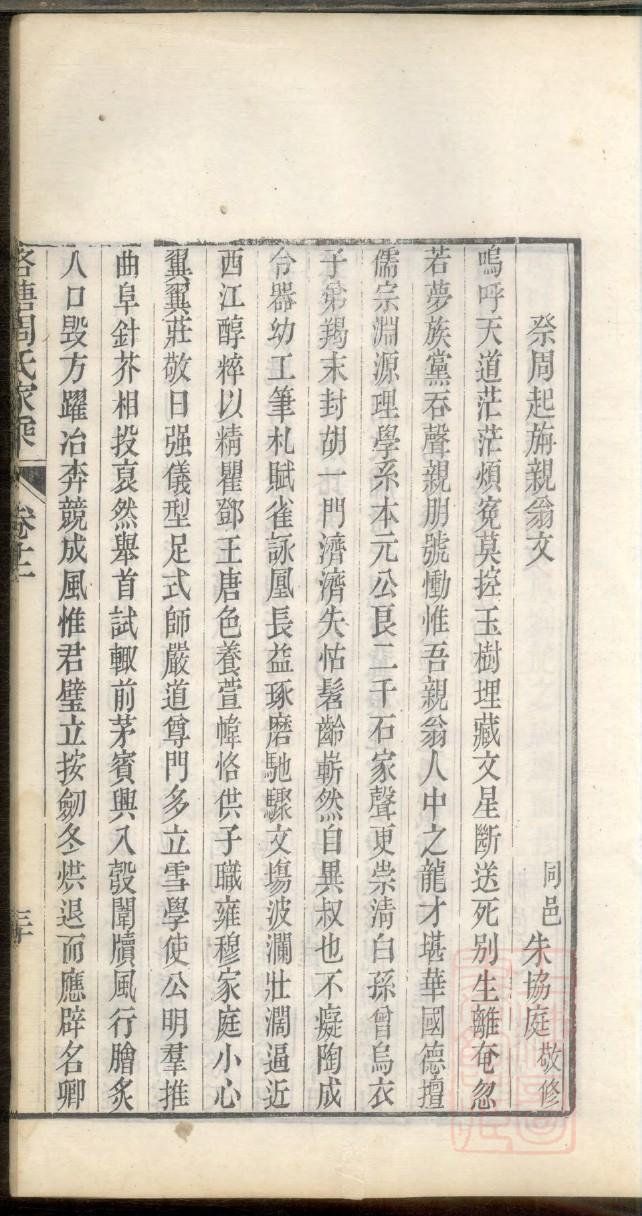 祭周起旃親翁文
同邑朱協庭敬修
嗚呼天道茫茫煩寃莫控玉樹埋藏文星斷送死別生離奄忽
若夢族黨吞聲親朋號慟惟吾親翁人中之龍才堪華國德擅
儒宗淵源理學系本元公良二千石家聲更崇清白孫曾烏衣
子弟羯末封胡一門濟濟失怙髫齡嶄然自異叔也不癡陶成
令器幼工筆札賦雀詠凰長益琢磨馳驟文塲波瀾壯濶逼近
西江醇粹以精瞿鄧王唐色養萱幃恪供子職雍穆家庭小心
翼翼莊敬日强儀型足式師嚴道尊門多立雪學使公明羣推
曲阜針芥相投裒然舉首試輙前茅賓興入彀闈牘風行膾炙
人口毀方躍冶奔競成風惟君壁立按劒冬烘退而應辟名卿
周氏家 卷十二
三十